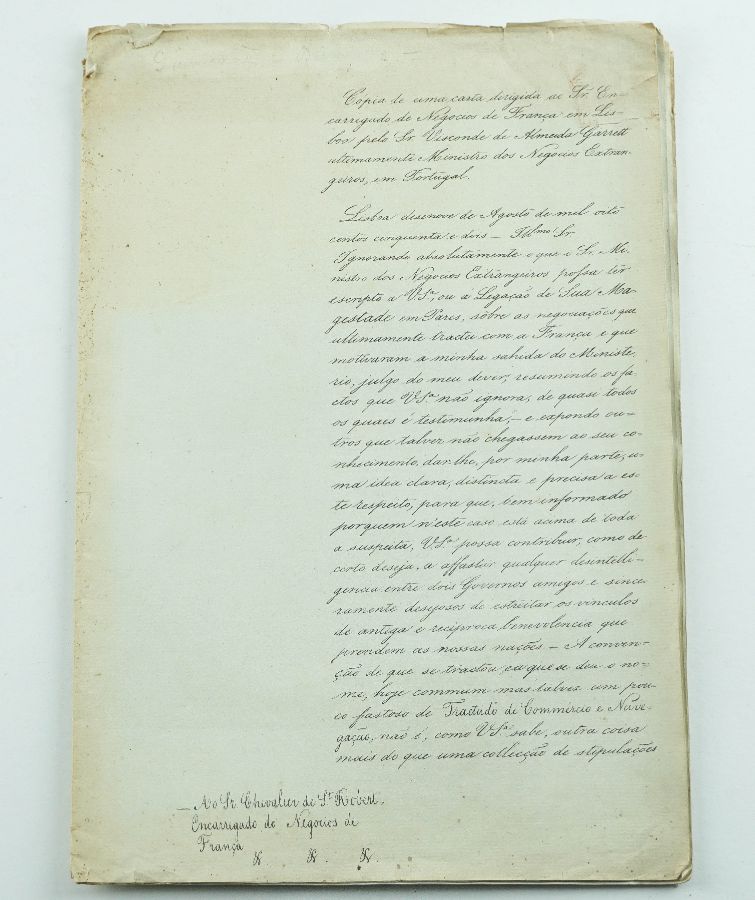 Cópia de uma carta dirigida ao Sr. En-
carrigado de Negocios de França em Lis-
boa pelo Sr. Visconde de Almeida Garrett
ultimamente Ministro dos Negocios Extran-
geiros, em Portugal.
Lisboa desenove de Agosto de mil oito
centos cinquenta e dois — Ill.mo Sr.
Ignorando absolutamente o que o Sr. Mi-
nistro dos Negocios Extrangeiros possa ter
escripto a V.Sª, ou a Legação de Sua Ma-
gestade em Paris, sôbre as negociações que
ultimamente tractei com a França e que
motivaram a minha sahida do Ministe-
rio, julgo do meu dever, resumindo os fa-
ctos que V.Sª não ignora, de quasi todos
os quais é testimunha, — e expondo ou-
tros que talvez não chegassem ao seu co-
nhecimento, dar-lhe, por minha parte, u-
ma idea clara, distincta e precisa a es-
te respeito, para que, bem informado
por quem n'este caso está acima de toda
a suspeita, V.Sª possa contribuir, como de
certo deseja, a affastar qualquer desintelli-
gencia entre dois Governos amigos e since-
ramente desejosos de estreitar os vinculos
de antiga e reciproca benevolencia que
prendem as nossas nações — A conven-
ção de que se tractou, e a que se deu o no-
me, hoje commum mas talvez um pou-
co fastoso de Tractado de Commercio e Nave-
gação, não é, como V.Sª sabe, outra coisa
mais do que uma collecção de stipulações
— Ao Sr. Chevalier de St. Robert.
Encarrigado de Negocios de
França